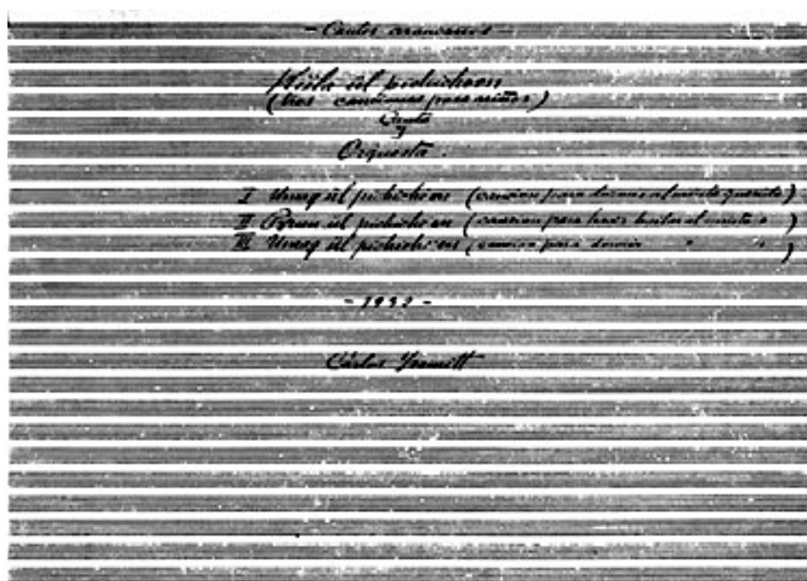 - Cantos araucanos -
Küla ül pichichoen
(tres canciones para niños)
Canto
y
Orquesta.
I Umag ül pichichoen (cancion para dormir al nietito querido)
II Purun ül pichichoen (cancion para hacer bailar al nietito " )
III Umag ül pichichoen (cancion para dormir " " )
- 1932 -
Cárlos Isamitt